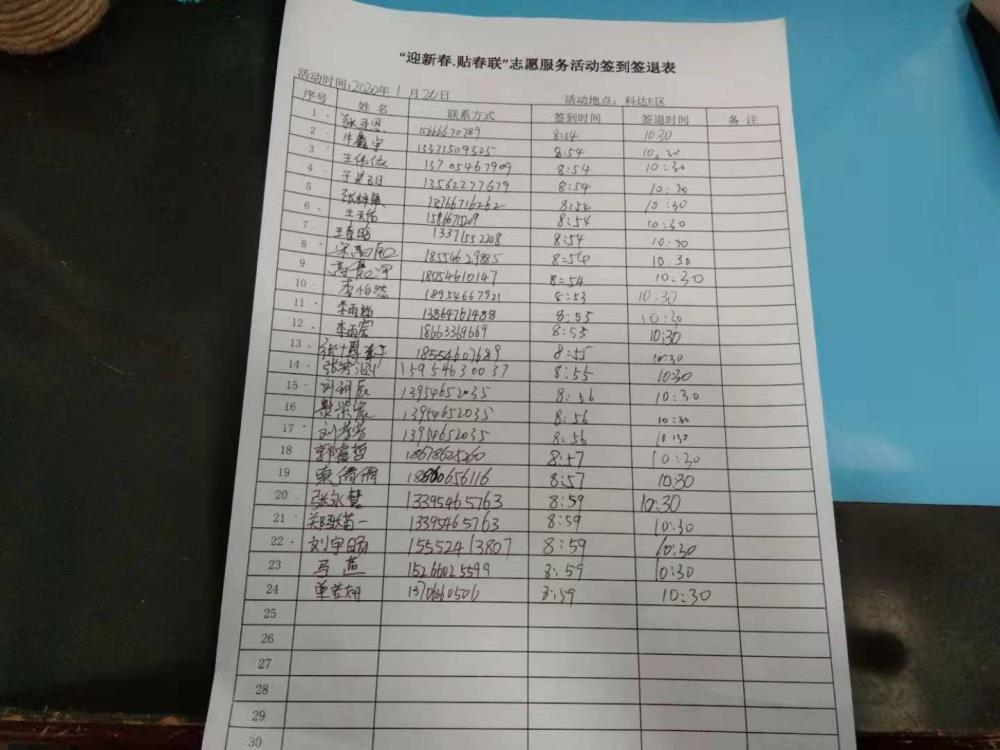 “迎新春.贴春联”志愿服务活动签到签退表
活动时间:2020年1月20日 活动地点：科达E区
序号 姓名 联系方式 签到时间 签退时间 备注
1 15666670789 8:54 10:30
2 13371509325 8:54 10:30
3 王伟依 13705467909 8:54 10:30
4 13562277679 8:54 10:30
5 8:54 10:30
6 8:54 10:30
7 王春晗 13371552208 8:54 10:30
8 18554629885 8:54 10:30
9 18054610147 8:54 10:30
10 李怡然 18954667921 8:53 10:30
11 13864761488 8:55 10:30
12 李雨宸 18663369669 8:55 10:30
13 18554607689 8:55 10:30
14 15954630037 8:55 10:30
15 13954652035 8:56 10:30
16 13954652035 8:56 10:30
17 刘芳芳 13954652035 8:56 10:30
18 郭富哲 18678625260 8:57 10:30
19 索倩倩 8:57 10:30
20 张永慧 13395465763 8:59 10:30
21 郑歆苗一 13395465763 8:59 10:30
22 刘宇旸 15552413807 8:59 10:30
23 马莲 15266025599 8:59 10:30
24 单若妍 8:59 10:30
25
26
27
28
29
30